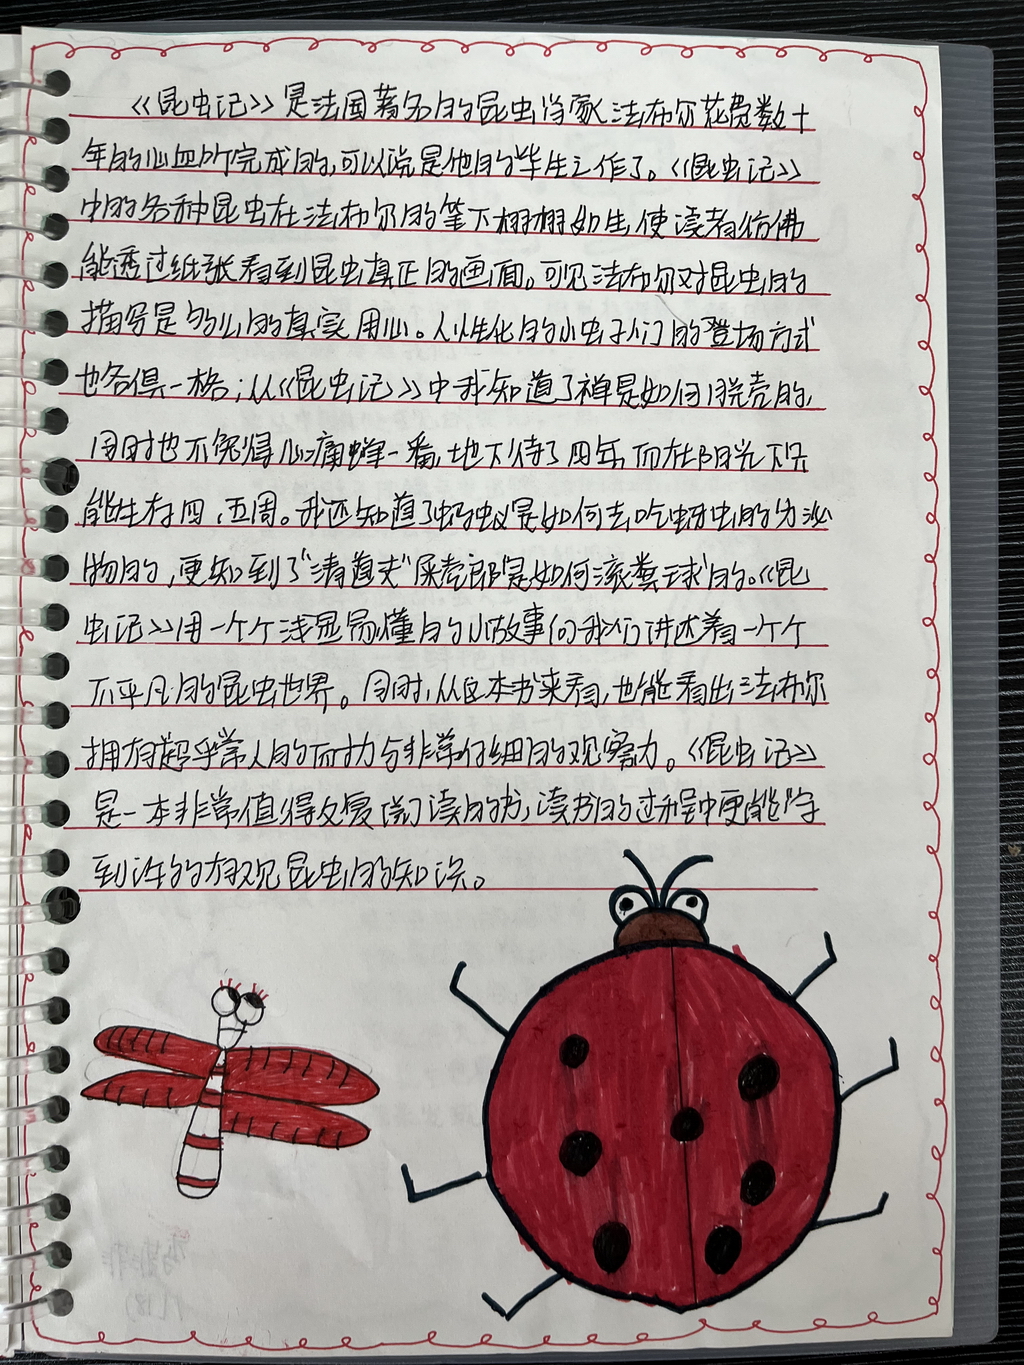 《昆虫记》是法国著名的昆虫学家法布尔花费数十
年的心血所完成的,可以说是他的毕生之作了。《昆虫记》
中的各种昆虫在法布尔的笔下栩栩如生,使读者仿佛
能透过纸张看到昆虫真正的画面。可见法布尔对昆虫的
描写是多么的真实用心。人性化的小虫子们的登场方式
也各俱一格;从《昆虫记》中我知道了禅是如何脱壳的,
同时也不免得心痛蝉一番,地下待了四年,而在阳光下只
能生存四、五周。我还知道了蚂蚁是如何去吃蚜虫的分泌
物的,更知到了“清道夫”屎壳郎“是如何滚粪球”的。《昆
虫记》用一个个浅显易懂的小故事向我们讲述着一个个
不平凡的昆虫世界。同时,从这本书来看,也能看出法布尔
拥有超乎常人的耐力与非常仔细的观察力。《昆虫记》
是一本非常值得反复阅读的书,读书的过程中更能学
到许多有观昆虫的知识。